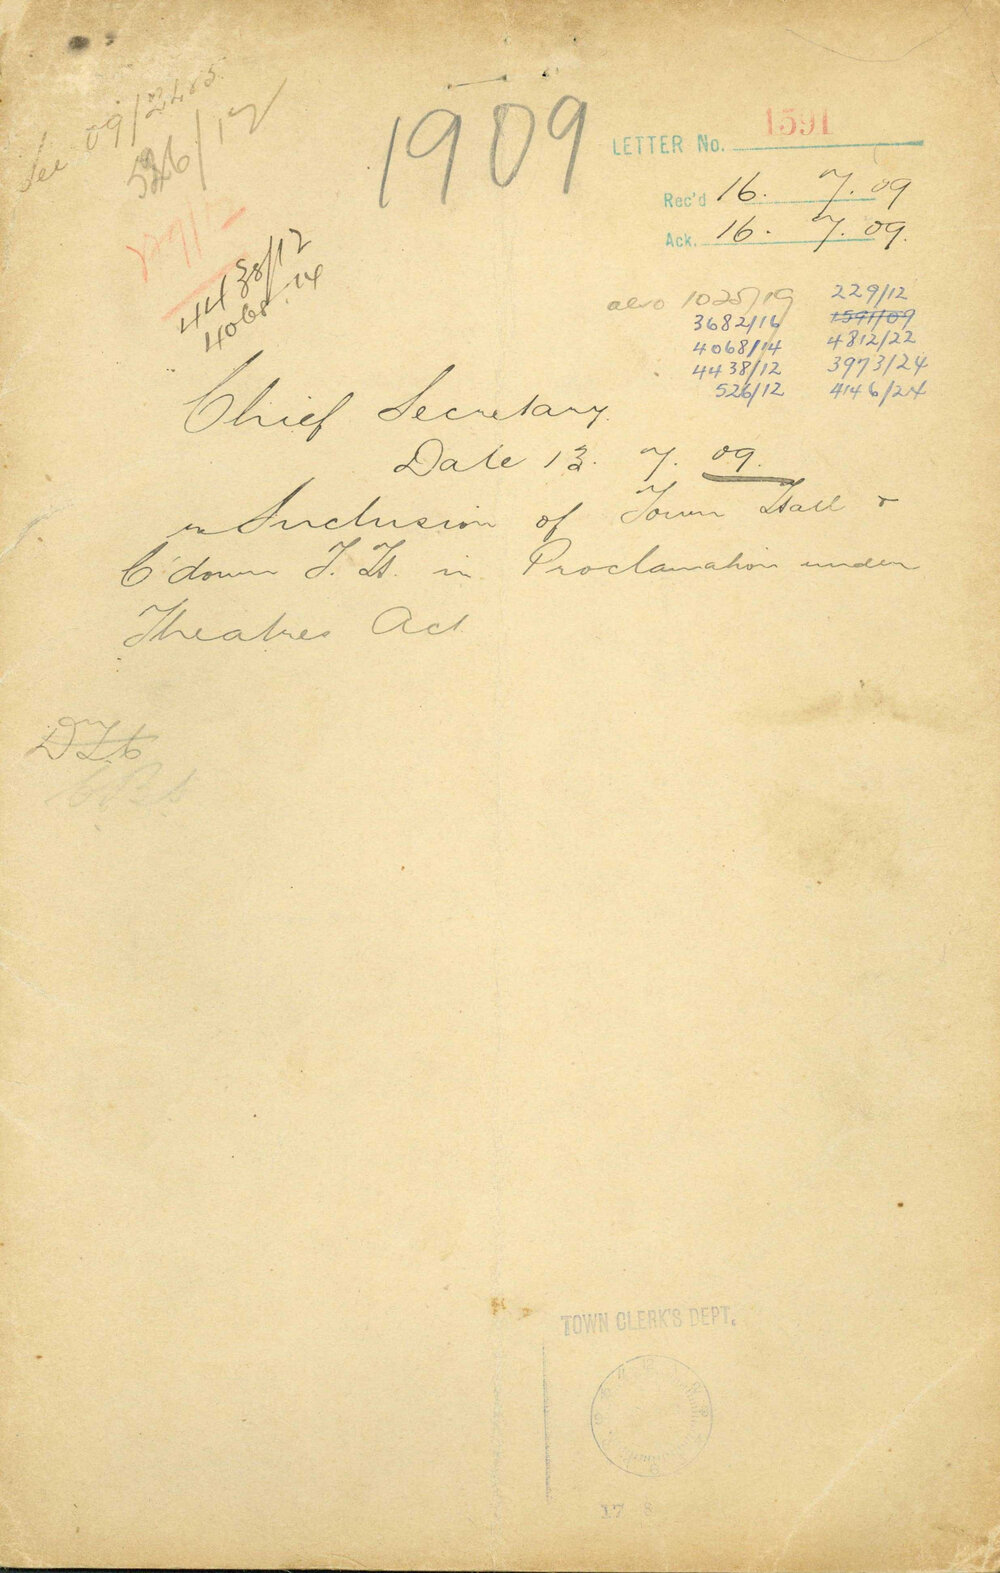 See 09/2465
526/12
4438/12
4068/14
1909
LETTER No. 1591
Rec'd 16. 7. 09
Ack. 16. 7. 09.
also 1025/19 229/12
3682/16 1591/09
4068/14 4812/22
4438/12 3973/24
526/12 4146/24
Chief Secretary.
Date 13. 7. 09.
re Inclusion of Town Hall &
C'down T.H. in Proclamation under
Theatres Act
TOWN CLERK'S DEPT.
17 8